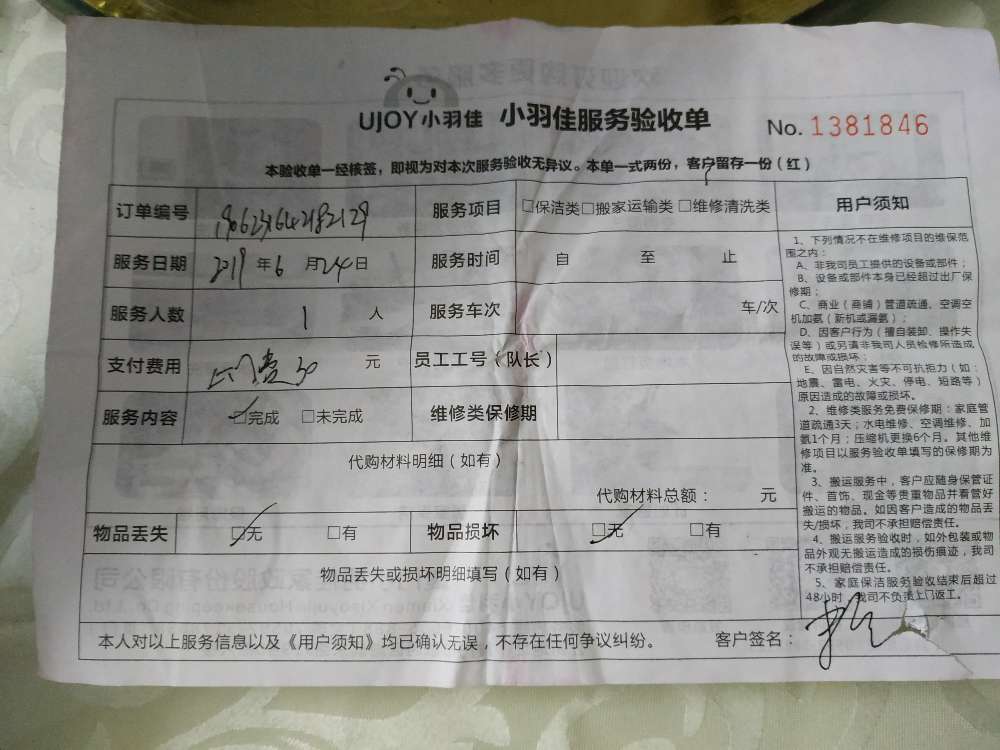 UJOY小羽佳 小羽佳服务验收单 No. 1381846
本验收单一经核签，即视为对本次服务验收无异议。本单一式两份，客户留存一份（红）
订单编号 服务项目 □保洁类□搬家运输类 □维修清洗类
服务日期 2019 年 6 月 24 日 服务时间 自 至 止
服务人数 1 人 服务车次 车/次
支付费用 上门费30 元 员工工号（队长）
服务内容 □完成 □未完成 维修类保修期
代购材料明细（如有）
代购材料总额： 元
物品丢失 □无 □有 物品损坏 □无 □有
物品丢失或损坏明细填写（如有）
用户须知
1、下列情况不在维修项目的维保范
围之内：
A、非我司员工提供的设备或部件；
B、设备或部件本身已经超过出厂保
修期；
C、商业（商铺）管道疏通、空调空
机加氨（新机或漏氨）；
D、因客户行为（擅自装卸、操作失
误等）或另请非我司人员检修所造成
的故障或损坏；
E、因自然灾害等不可抗拒力（如：
地震、雷电、火灾、停电、短路等）
原因造成的故障或损坏。
2、维修类服务免费保修期：家庭管
道疏通3天；水电维修、空调维修、加
氨1个月；压缩机更换6个月。其他维
修项目以服务验收单填写的保修期为
准。
3、搬运服务中，客户应随身保管证
件、首饰、现金等贵重物品并看管好
搬运的物品。如因客户造成的物品丢
失/损坏，我司不承担赔偿责任。
4、搬运服务验收时，如外包装或物
品外观无搬运造成的损伤痕迹，我司
不承担赔偿责任。
5、家庭保洁服务验收结束后超过
48小时，我司不负责上门返工。
本人对以上服务信息以及《用户须知》均已确认无误，不存在任何争议纠纷。 客户签名：